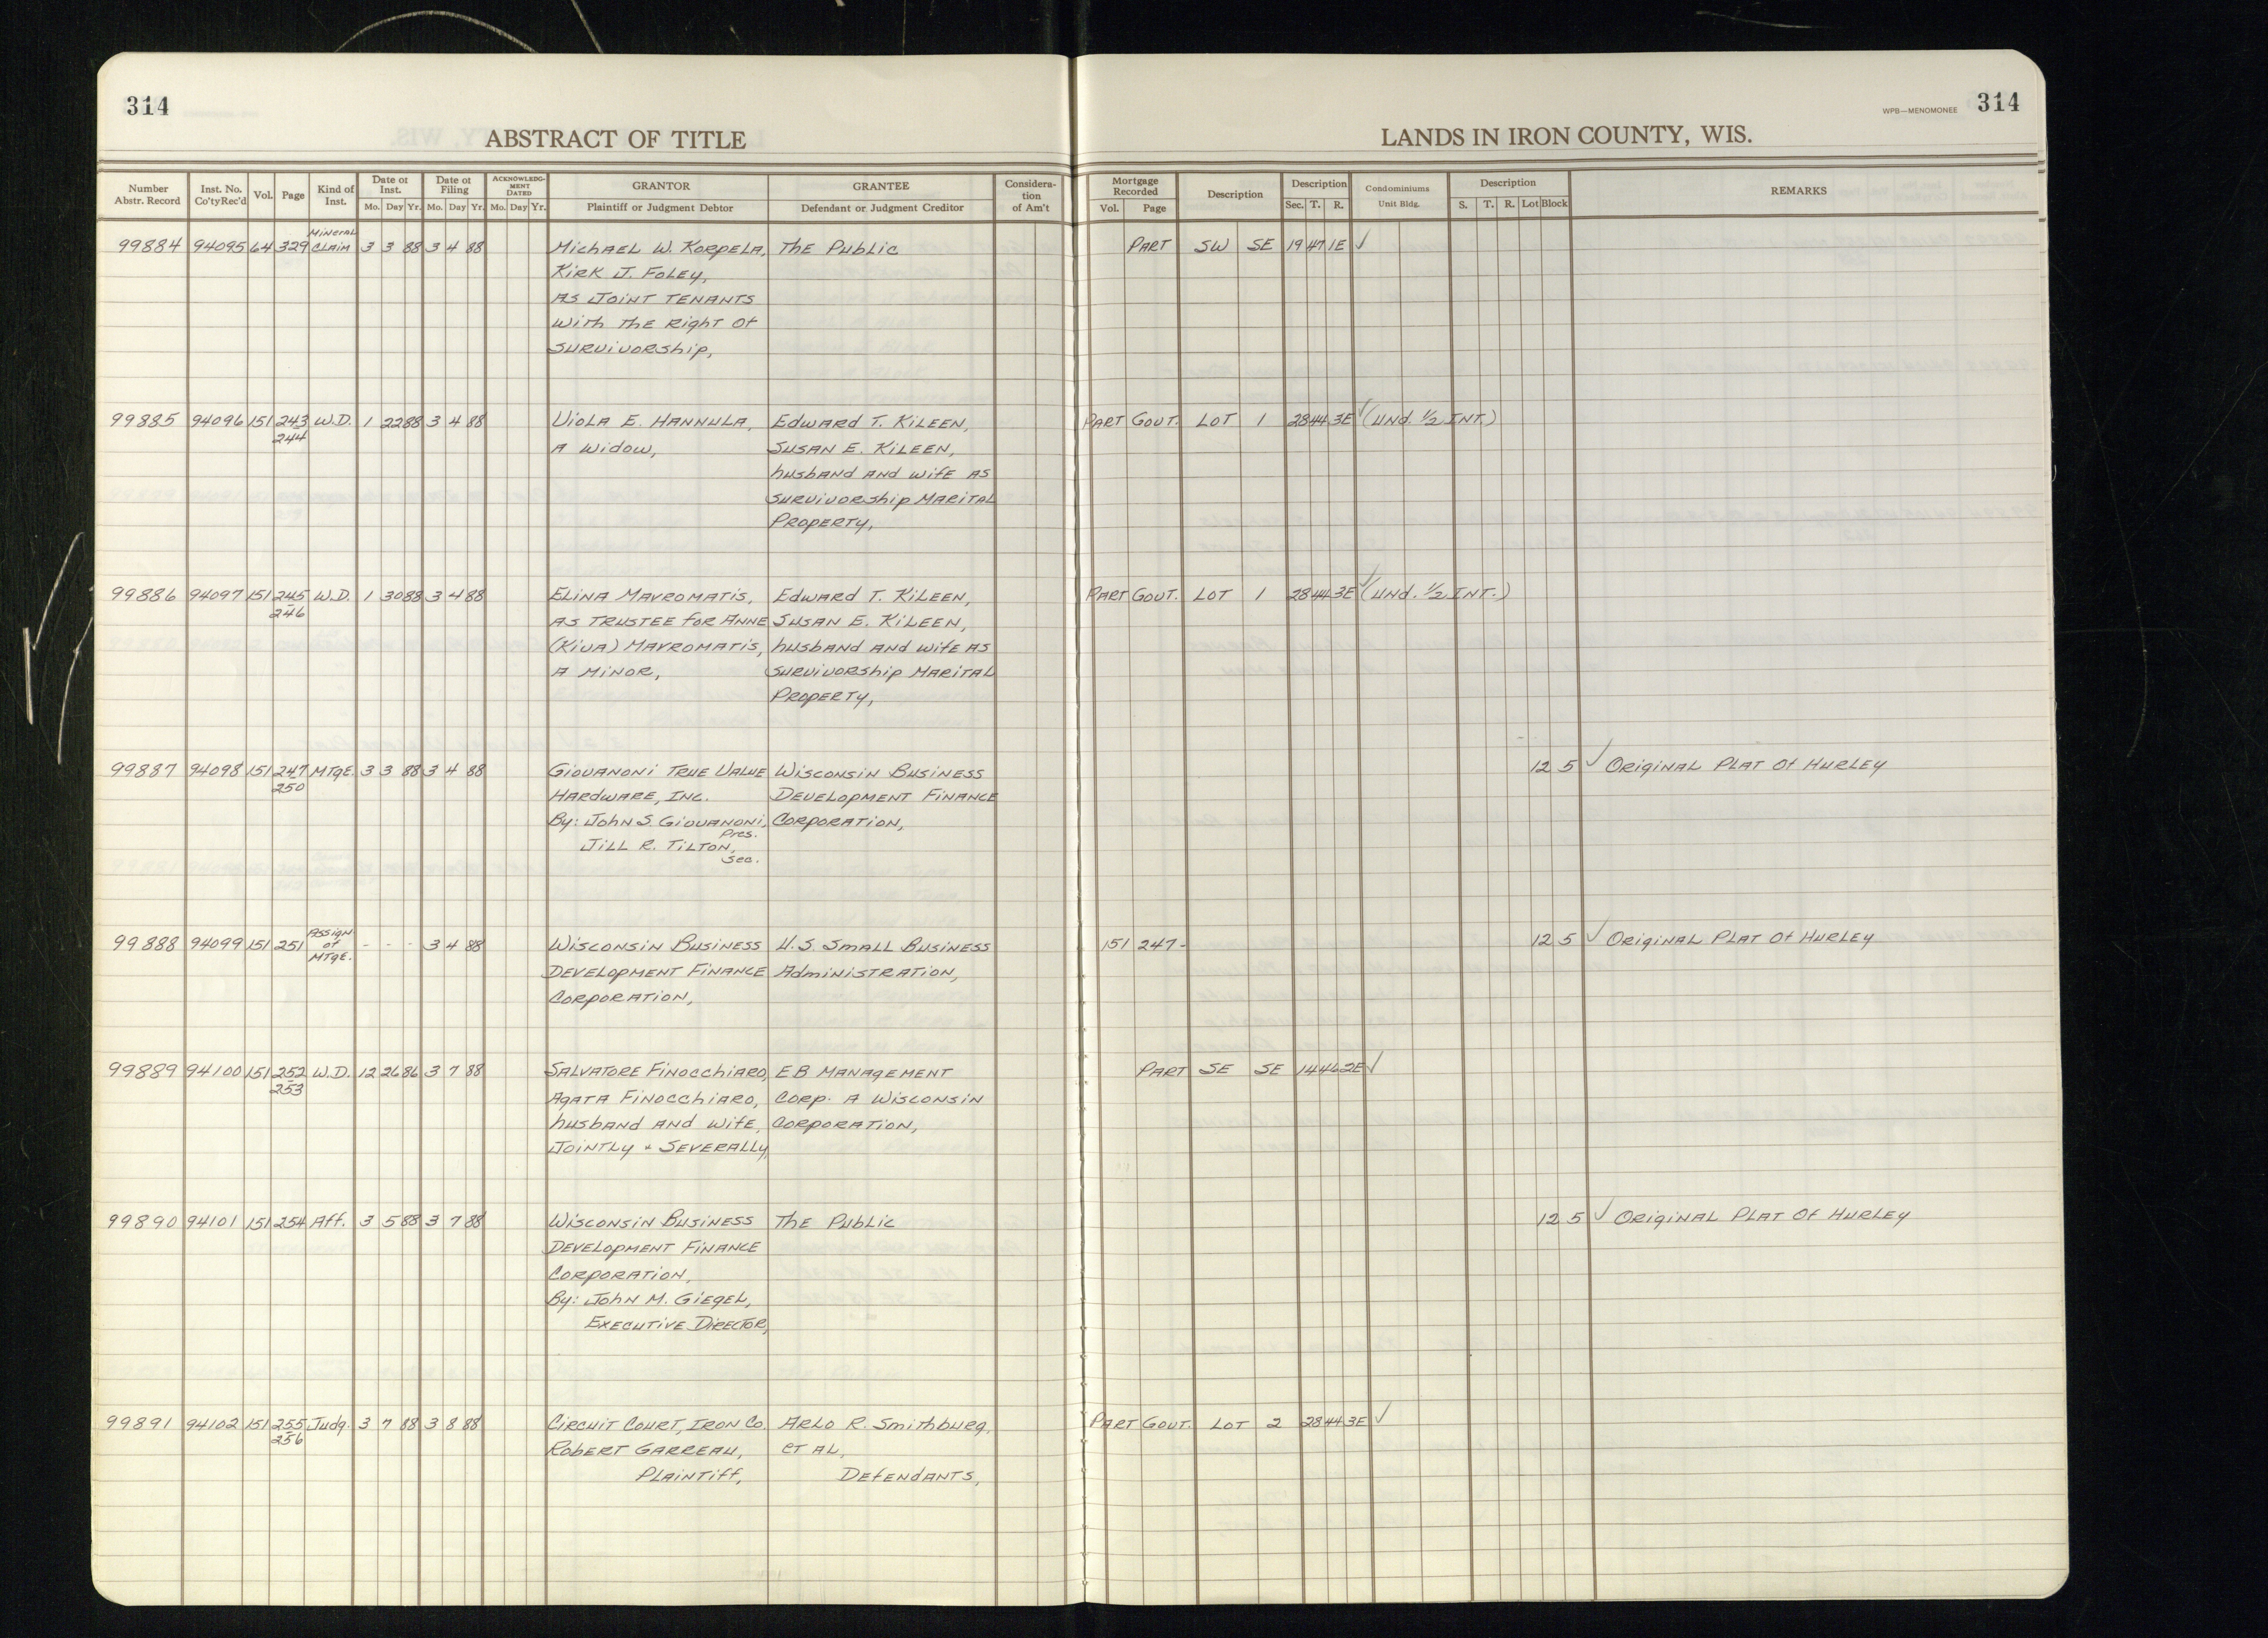 314
ABSTRACT OF TITLE
WPB—MENOMONEE 314
LANDS IN IRON COUNTY, WIS.
Number Abstr. Record Inst. No. Co'ty Rec'd Vol. Page Kind of Inst. Date of Inst. Mo. Day Yr. Date of Filing Mo. Day Yr. ACKNOWLEDGMENT DATED Mo. Day Yr. GRANTOR Plaintiff or Judgment Debtor GRANTEE Defendant or Judgment Creditor Consideration of Am't Mortgage Recorded Vol. Page Description Description Sec. T. R. Condominiums Unit Bldg. Description S. T. R. Lot Block REMARKS
99884 94095 64 329 Mineral Claim 3 3 88 3 4 88 Michael W. Korpela, The Public Part SW SE 19 47 1E ✓
Kirk J. Foley,
as Joint Tenants
with the right of
survivorship,
99885 94096 151 243-244 W.D. 1 22 88 3 4 88 Viola E. Hannula, Edward T. Kileen, Part Govt. Lot 1 28 44 3E ✓ (Und. 1/2 Int.)
a widow, Susan E. Kileen,
husband and wife as
survivorship marital
property,
99886 94097 151 245-246 W.D. 1 30 88 3 4 88 Elina Mavromatis, Edward T. Kileen, Part Govt. Lot 1 28 44 3E ✓ (Und. 1/2 Int.)
as trustee for Anne Susan E. Kileen,
(Kiva) Mavromatis, husband and wife as
a minor, survivorship marital
property,
99887 94098 151 247-250 Mtge. 3 3 88 3 4 88 Giovanoni True Value Wisconsin Business 12 5 ✓ Original Plat of Hurley
Hardware, Inc. Development Finance
By: John S. Giovanoni, Pres. Corporation,
Jill R. Tilton, Sec.
99888 94099 151 251 Assign. of Mtge. - - - 3 4 88 Wisconsin Business U.S. Small Business 151 247- 12 5 ✓ Original Plat of Hurley
Development Finance Administration,
Corporation,
99889 94100 151 252-253 W.D. 12 26 86 3 7 88 Salvatore Finocchiaro, EB Management Part SE SE 14 46 2E ✓
Agata Finocchiaro, Corp. a Wisconsin
husband and wife, Corporation,
Jointly + Severally,
99890 94101 151 254 Aff. 3 5 88 3 7 88 Wisconsin Business The Public 12 5 ✓ Original Plat of Hurley
Development Finance
Corporation,
By: John M. Giegel,
Executive Director,
99891 94102 151 255-256 Judg. 3 7 88 3 8 88 Circuit Court, Iron Co. Arlo R. Smithburg, Part Govt. Lot 2 28 44 3E ✓
Robert Garreau, et al,
Plaintiff, Defendants,